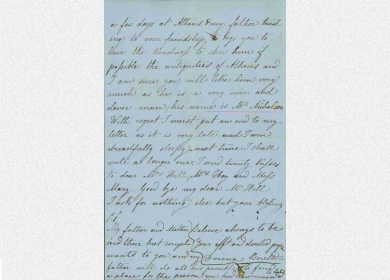 a few days at Athens & my father trust
ing to your friendship begs you to
have the kindness to show him if
possible the antiquities of Athens and
I am sure you will like him very
much as he is a very nice and
clever man, his name is Mr Nicholson
With regret I must put an end to my
letter as it is very late and I am
dreadfully sleepy next time I shall
write a longer one I send twenty kisses
to dear Mrs Hill, Mrs and Miss
Mary. Good bye my dear Mr Hill
I ask for nothing else but your blessing
My father and Mother believe always to be
send their best your aff and devoted
ments to you and my
father will do all his to find
a place for the person you